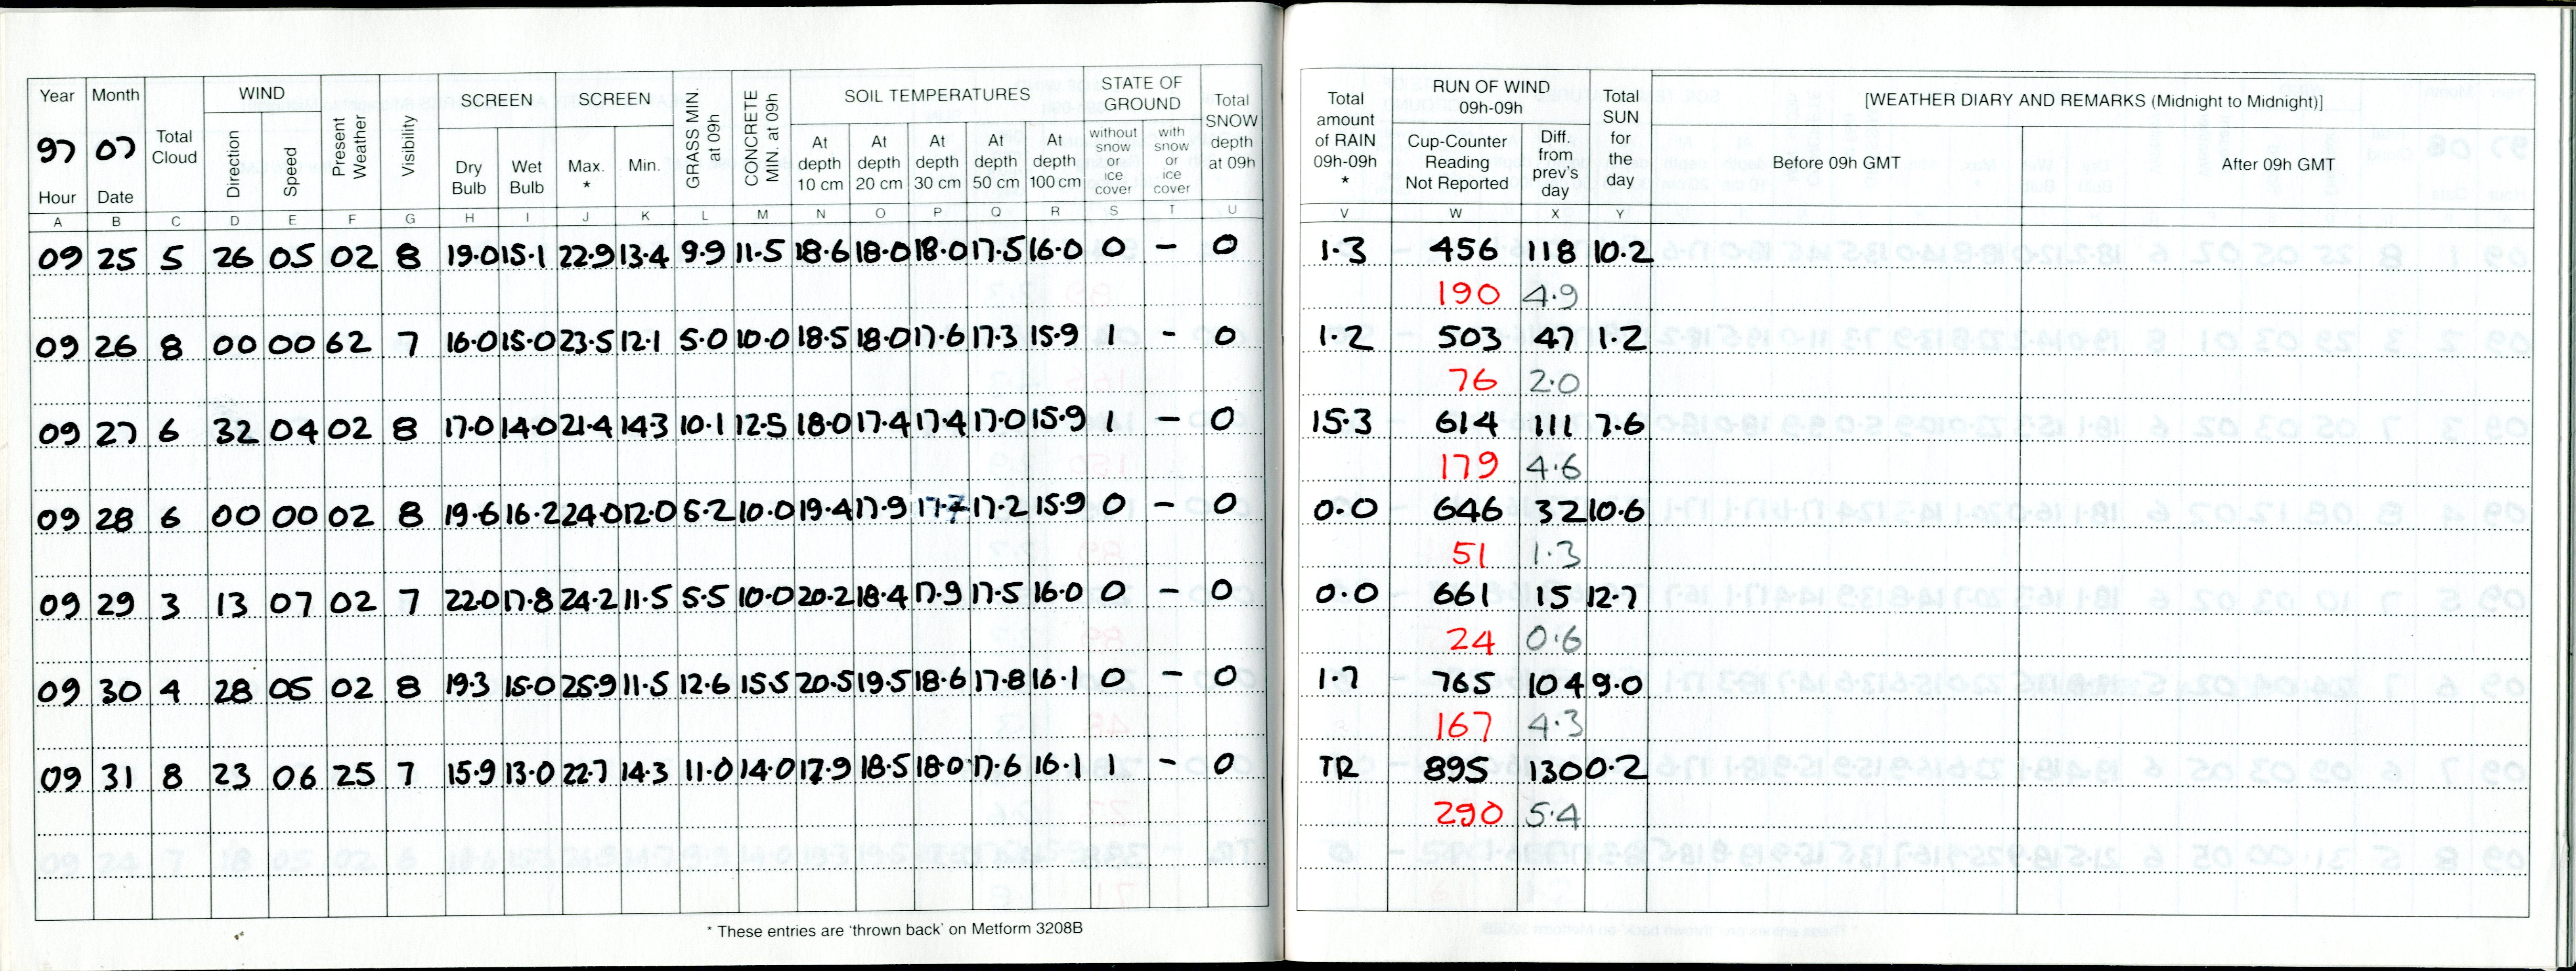 Year Month Total Cloud WIND Present Weather Visibility SCREEN SCREEN GRASS MIN. at 09h CONCRETE MIN. at 09h SOIL TEMPERATURES STATE OF GROUND Total SNOW depth at 09h
97 07 Direction Speed Dry Bulb Wet Bulb Max. * Min. At depth 10 cm At depth 20 cm At depth 30 cm At depth 50 cm At depth 100 cm without snow or ice cover with snow or ice cover
Hour Date
A B C D E F G H I J K L M N O P Q R S T U
09 25 5 26 05 02 8 19.0 15.1 22.9 13.4 9.9 11.5 18.6 18.0 18.0 17.5 16.0 0 – 0
09 26 8 00 00 62 7 16.0 15.0 23.5 12.1 5.0 10.0 18.5 18.0 17.6 17.3 15.9 1 – 0
09 27 6 32 04 02 8 17.0 14.0 21.4 14.3 10.1 12.5 18.0 17.4 17.4 17.0 15.9 1 – 0
09 28 6 00 00 02 8 19.6 16.2 24.0 12.0 10.0 19.4 17.9 17.7 17.2 15.9 0 – 0
09 29 3 13 07 02 7 22.0 17.8 24.2 11.5 5.5 10.0 20.2 18.4 17.9 17.5 16.0 0 – 0
09 30 4 28 05 02 8 19.3 15.0 25.9 11.5 12.6 15.5 20.5 19.5 18.6 17.8 16.1 0 – 0
09 31 8 23 06 25 7 15.9 13.0 22.7 14.3 11.0 14.0 17.9 18.5 18.0 17.6 16.1 1 – 0
* These entries are 'thrown back' on Metform 3208B
Total amount of RAIN 09h-09h * RUN OF WIND 09h-09h Total SUN for the day [WEATHER DIARY AND REMARKS (Midnight to Midnight)]
Cup-Counter Reading Not Reported Diff. from prev's day Before 09h GMT After 09h GMT
V W X Y
1.3 456 118 10.2
190 4.9
1.2 503 47 1.2
76 2.0
15.3 614 111 7.6
179 4.6
0.0 646 32 10.6
51 1.3
0.0 661 15 12.7
24 0.6
1.7 765 104 9.0
167 4.3
TR 895 130 0.2
290 5.4